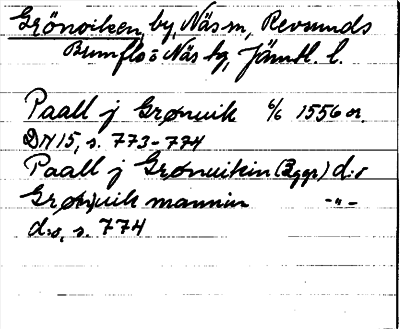 Grönviken, by, Näs sn, Revsunds
Brunflo o Näs tg, Jämtl. l.
Paall j Grønuik 6/6 1556 or.
DN 15, s. 773-774
Paall j Grønuikin (Bggr) d:o
Grøn)uik mannin -"-
d:o, s. 774